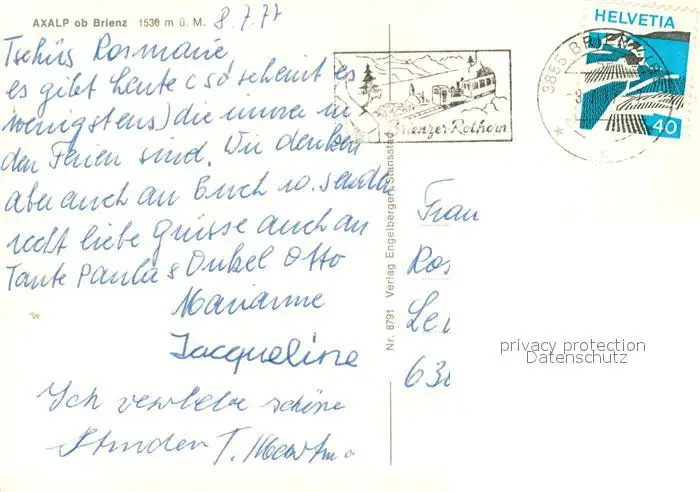 AXALP ob Brienz 1530 m ü. M. 8.7.77
Tschüs Rosmarie,
es gibt heute (so scheint es
wenigstens) die immer in
den Ferien sind. Wir denken
aber auch an Euch u. senden
recht liebe Grüsse auch an
Tante Paula & Onkel Otto
Marianne
Jacqueline
Ich verlebe schöne
Stunden T.
Nr. 8791 Verlag Engelberger, Stansstad
Brienzer-Rothorn
3855 BRIENZ
HELVETIA
40
Frau
Ros
Le
630
privacy protection
Datenschutz